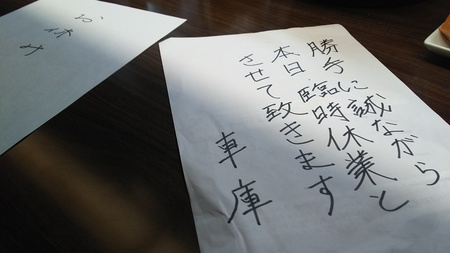 勝手に誠ながら
本日臨時休業と
させて致きます
車庫
お休み